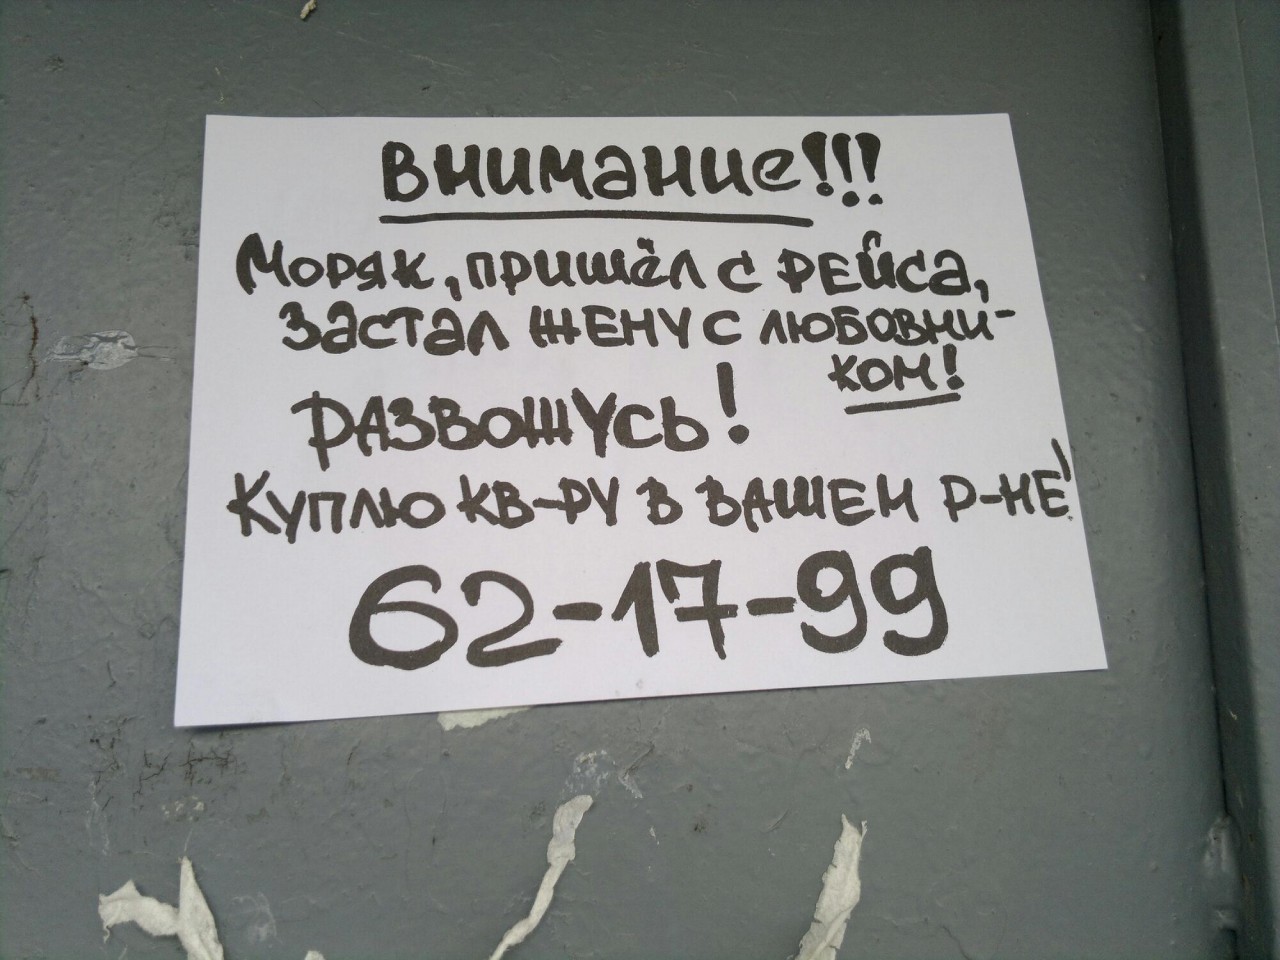 Внимание!!!
Моряк, пришёл с рейса,
застал жену с любовни-
ком!
Развожусь!
Куплю кв-ру в вашем р-не!
62-17-99